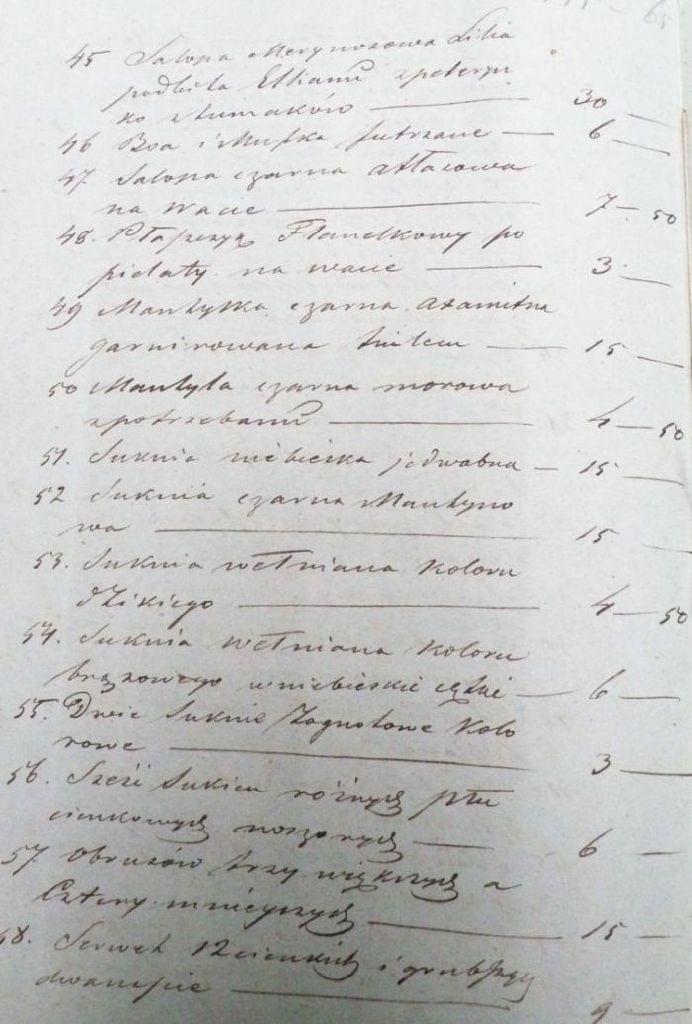 45 Salopa Merynosowa Lilia
podbita Elkami z peleryn
ko z tumaków — 30 —
46 Boa i Mufka futrzane — 6 —
47 Salopa czarna atłasowa
na wacie — 7 — 50
48. Płaszczyk Flanelkowy po
pielaty na wacie — 3 —
49 Mantylka czarna axamitna
garnirowana tiulem — 15 —
50 Mantyla czarna morowa
z potrzebami — 4 — 50
51. Suknia niebieska jedwabna — 15 —
52 Suknia czarna Mantyno
wa — 15 —
53. Suknia wełniana koloru
dzikiego — 4 — 50
54. Suknia wełniana koloru
brązowego w niebieskie — 6 —
55. Dwie Suknie Żagnotowe kolo
rowe — 3 —
56. Sześć Sukien różnych płu
cienkowych noszonych — 6 —
57 Obrusów trzy większych a
Cztery mnieyszych — 15 —
48. Serwet 12 cienkich i grubszych
dwanaście — 9 —